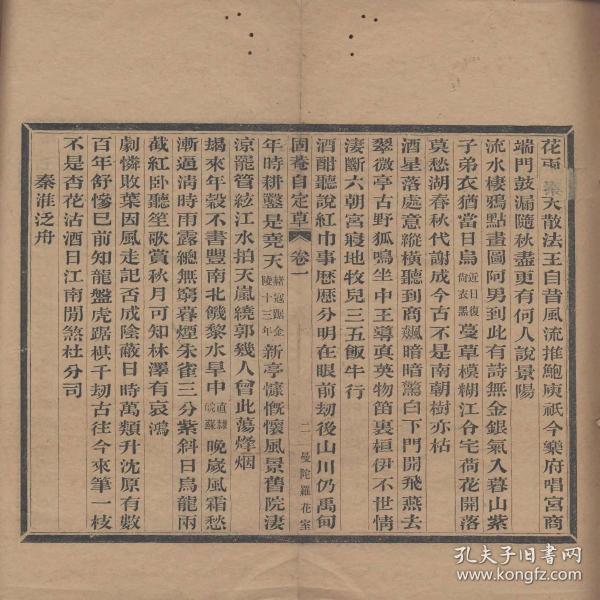 花再 天散法王自昔風流推鮑庾祇今樂府唱宮商
端門鼓漏隨秋盡更有何人說景陽
流水棲鴉點畫圖阿男到此有詩無金銀氣入暮山紫
子弟衣猶當日烏近日復尚衣黑蔓草模糊江令宅荷花開落
莫愁湖春秋代謝成今古不是南朝樹亦枯
酒星落處意縱橫聽到商飆暗暗驚白下門開飛燕去
翠微亭古野狐鳴坐中王導真英物笛裏桓伊不世情
淒斷六朝宮寢地牧兒三五飯牛行
酒酣聽說紅巾事歷歷分明在眼前劫後山川仍禹甸
固菴自定草 卷一 二 曼陀羅花室
年時耕鑿是堯天赭冠踞金陵十三年新亭慷慨懷風景舊院淒
涼罷管絃江水拍天嵐繞郭幾人曾此蕩烽烟
朅來年穀不書豐南北饑黎水旱中直隸皖蘇晚歲風霜愁
漸逼清時雨露總無窮暮煙朱雀三分紫斜日烏龍兩
截紅卧聽笙歌賞秋月可知林澤有哀鴻
劇憐敗葉因風走記否成陰蔽日時萬類升沈原有數
百年舒慘已前知龍盤虎踞棋千劫古往今來筆一枝
不是杏花沽酒日江南閒煞杜分司
秦淮泛舟
孔夫子旧书网
www.kongfz.com